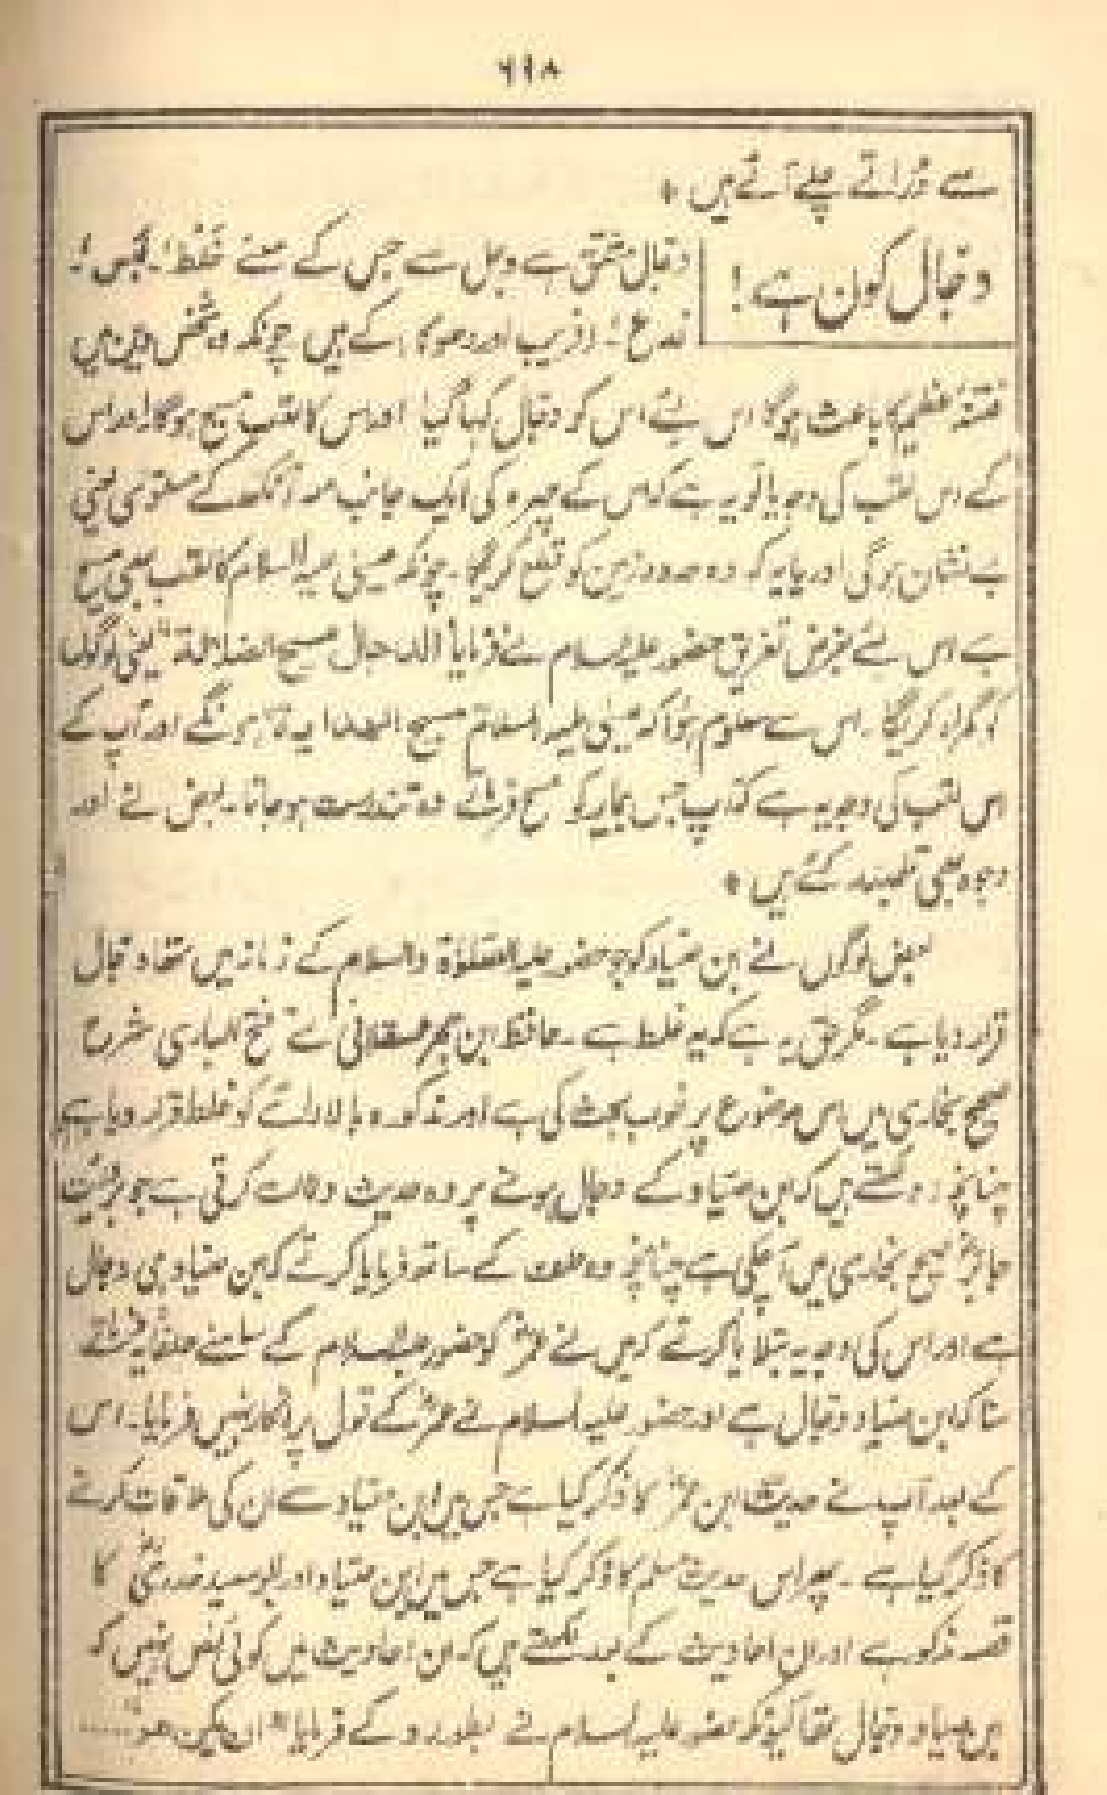 ٦١٨
سے ڈراتے چلے آئے ہیں *
دجّال کون ہے!
دجّال مشتق ہے دجل سے جس کے معنے خَلْط، لَبْس،
خدع، (فریب اور دھوکا) کے ہیں چونکہ وہ شخص دین میں
فتنۂ عظیم کا باعث ہوگا اس لئے اس کو دجال کہا گیا اور اس کا لقب مسیح ہوگا اور اس
کے اس لقب کی وجہ یا تو یہ ہے کہ اس کے چہرہ کی ایک جانب مع آنکھ کے مستوی یعنی
بے نشان ہوگی اور یا یہ کہ وہ حدود زمین کو قطع کریگا۔ چونکہ عیسٰی علیہ السلام کا لقب بھی مسیح
ہے اس لئے بغرض تفریق حضور علیہ السلام نے فرمایا الدجال مسیح الضلالة یعنی لوگوں
کو گمراہ کریگا۔ اس سے معلوم ہوا کہ عیسٰی علیہ السلام مسیح الهداية ہونگے اور آپ کے
اس لقب کی وجہ یہ ہے کہ آپ جس بیمار کو مسح فرماتے وہ تندرست ہو جاتا۔ بعض نے اور
وجوہ بھی قلمبند کئے ہیں *
بعض لوگوں نے ابن صیّاد کو جو حضور علیہ الصلوٰة والسلام کے زمانہ میں تھا دجّال
قرار دیا ہے۔ مگر حق یہ ہے کہ یہ غلط ہے۔ حافظ ابن حجر عسقلانی نے فتح الباری شرح
صحیح بخاری میں اس موضوع پر خوب بحث کی ہے اور مذکورہ بالا رائے کو غلط قرار دیا ہے
چنانچہ وہ لکھتے ہیں کہ ابن صیّاد کے دجال ہونے پر وہ حدیث دلالت کرتی ہے جو بروایت
جابرؓ صحیح بخاری میں آچکی ہے چنانچہ وہ حلف کے ساتھ فرمایا کرتے کہ ابن صیّاد ہی دجال
ہے اور اس کی وجہ یہ بتلایا کرتے کہ میں نے عمرؓ کو حضور علیہ السلام کے سامنے حلفاً یہ فرماتے
سنا کہ ابن صیّاد دجّال ہے اور حضور علیہ السلام نے عمرؓ کے قول پر انکار نہیں فرمایا۔ اس
کے بعد آپ نے حدیث ابن عمرؓ کا ذکر کیا ہے جس میں ابن صیّاد سے ان کی ملاقات کرنے
کا ذکر کیا ہے۔ پھر اس حدیث مسلم کا ذکر کیا ہے جس میں ابن صیّاد اور ابو سعید خدریؓ کا
قصہ مذکور ہے اور ان احادیث کے بعد لکھتے ہیں کہ ان احادیث میں کوئی نص نہیں کہ
ابن صیاد دجّال تھا کیونکہ حضور علیہ السلام نے بطور رد کے فرمایا "ان یکن ھو" .....